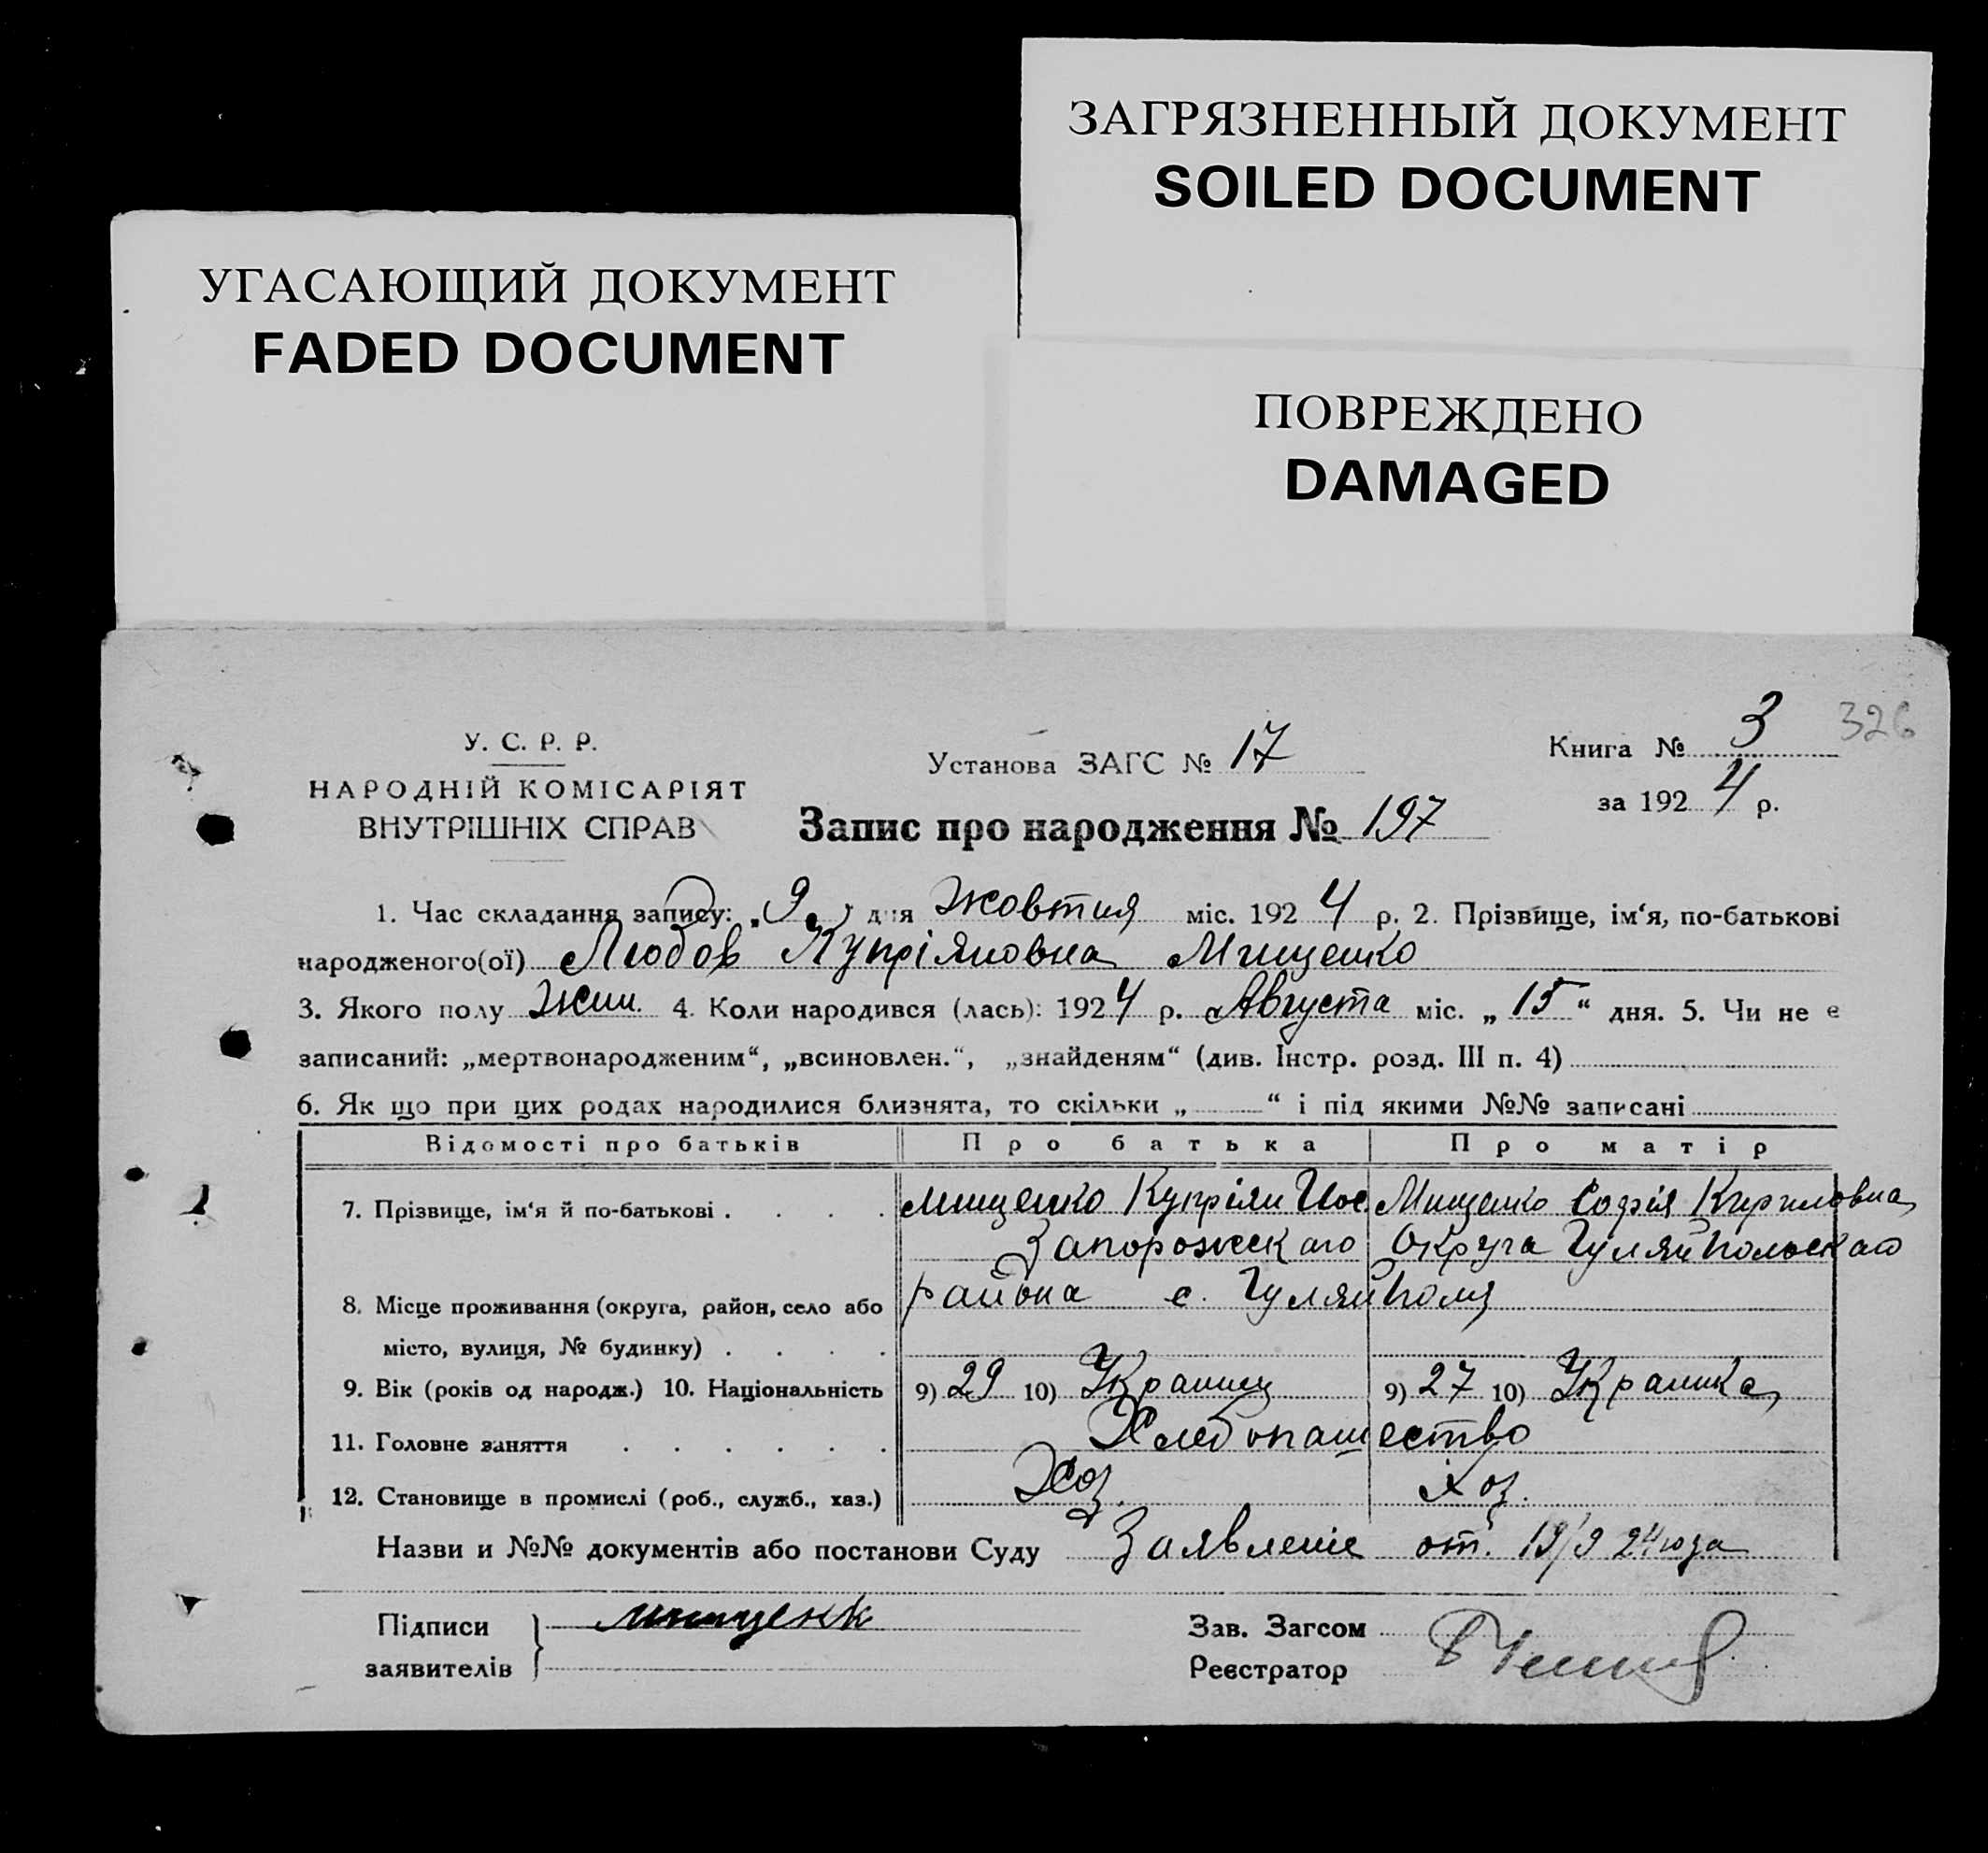 ЗАГРЯЗНЕННЫЙ ДОКУМЕНТ
SOILED DOCUMENT
УГАСАЮЩИЙ ДОКУМЕНТ
FADED DOCUMENT
ПОВРЕЖДЕНО
DAMAGED
326
У. С. Р. Р.
НАРОДНІЙ КОМІСАРІЯТ
ВНУТРІШНІХ СПРАВ
Установа ЗАГС № 17
Книга № 3
за 1924 р.
Запис про народження № 197
1. Час складання запису: „9„ дня Жовтня міс. 1924 р. 2. Прізвище, ім‘я, по-батькові
народженого(ої) Любов Купріяновна Мищенко
3. Якого полу Жин. 4. Коли народився (лась): 1924 р. Августа міс. „15“ дня. 5. Чи не є
записаний: „мертвонародженим“, „всиновлен.“, „знайденям“ (див. Інстр. розд. III п. 4)
6. Як що при цих родах народилися близнята, то скільки „ “ і під якими №№ записані
Відомості про батьків Про батька Про матір
7. Прізвище, ім‘я й по-батькові . . . . Мищенко Купріян Иос. Мищенко Софія Кириловна
Запорожскаго Округа Гуляйпольскаго
8. Місце проживання (округа, район, село або района с. Гуляйполя
місто, вулиця, № будинку) . . . .
9. Вік (років од народж.) 10. Національність 9) 29 10) Украинц 9) 27 10) Украинка
11. Головне заняття . . . . . . Хлебопашество
12. Становище в промислі (роб., служб., хаз.) Хоз. Хоз.
Назви и №№ документів або постанови Суду Заявленіе от. 19/9 24 года
Підписи
заявителів
мищенк
Зав. Загсом
Реєстратор